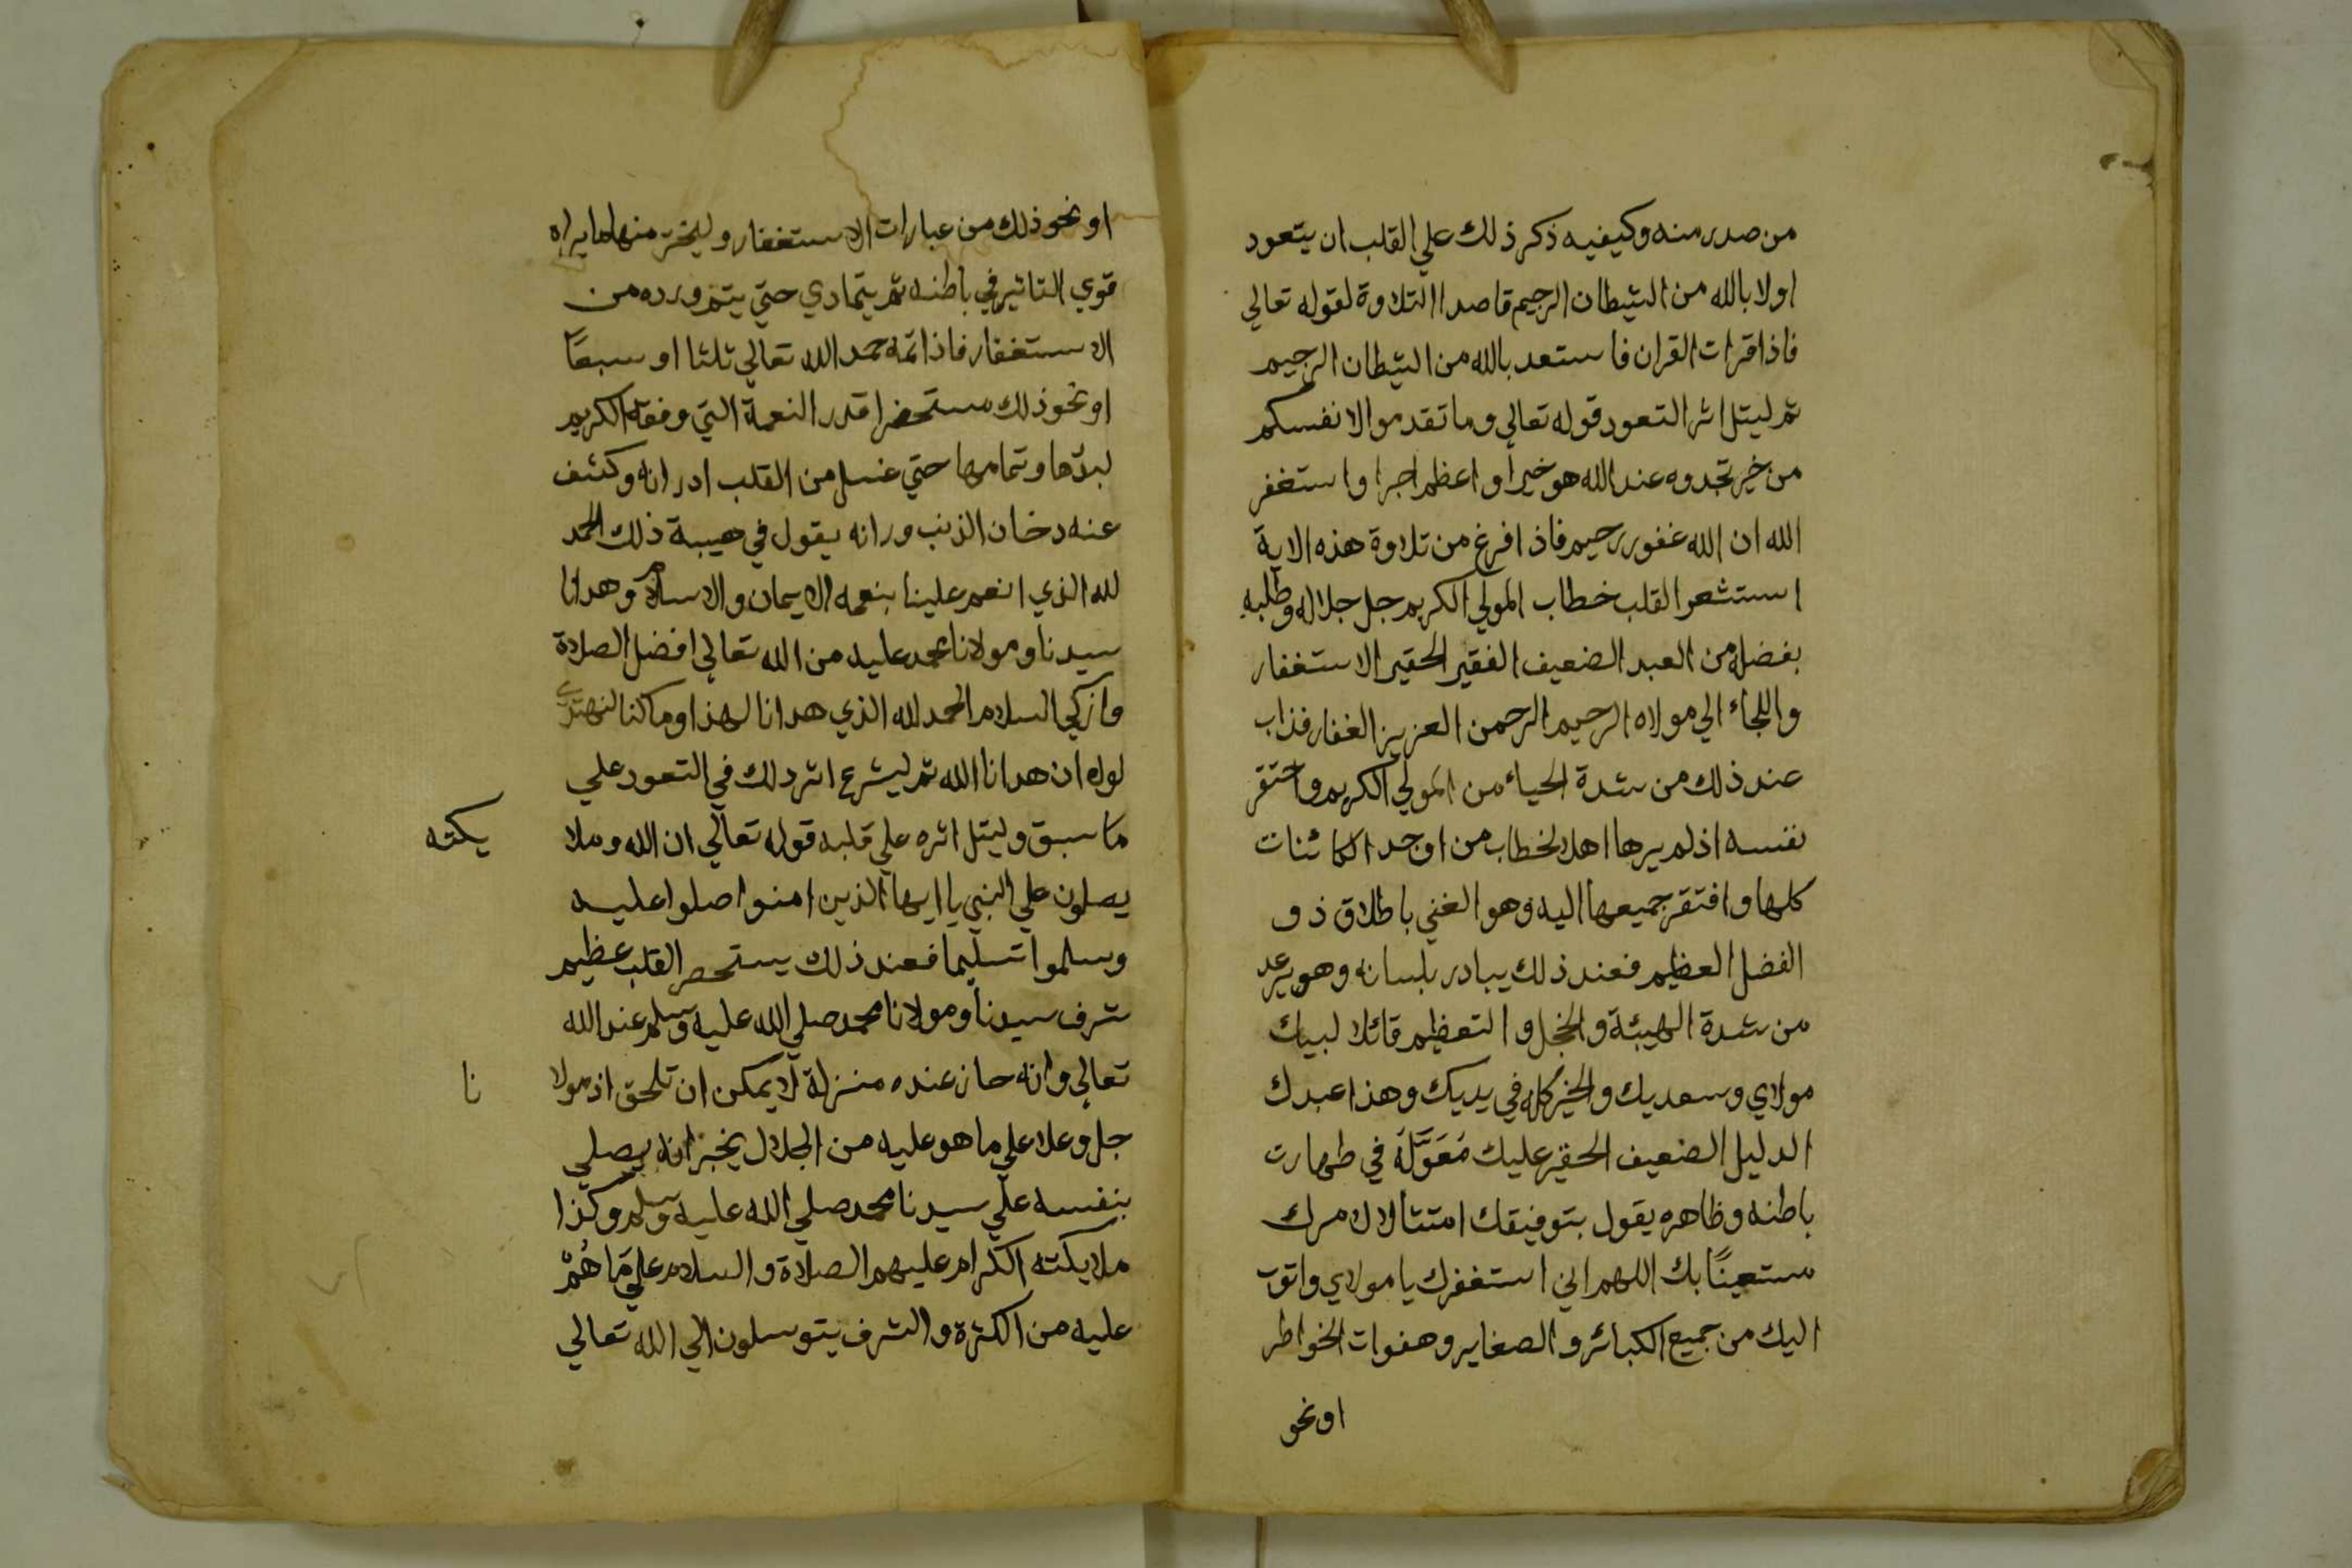 من صدر منه وكيفيه ذكر ذلك علي القلب ان يتعود
اولا بالله من الشيطان الرجيم قاصدا التلاوة لقوله تعالي
فاذا قرات القران فاستعد بالله من الشيطان الرجيم
ثم ليتل اثر التعود قوله تعالي وما تقدموا لانفسكم
من خير تجدوه عند الله هو خيرا واعظم اجرا واستغفر
الله ان الله غفور رحيم فاذا فرغ من تلاوة هذه الاية
استشعر القلب خطاب المولي الكريم جل جلاله وطلبه
بفضله من العبد الضعيف الفقير الحقير الاستغفار
واللجاء الي مولاه الرحيم الرحمن العزيز الغفار فذاب
عند ذلك من شدة الحياء من المولي الكريم واحتقر
نفسه اذ لم يرها اهلا لخطاب من اوجد الكائنات
كلها وافتقر جميعها اليه وهو الغني باطلاق ذو
الفضل العظيم فعند ذلك يبادر بلسانه وهو يرعد
من شدة الهيبة والخجل والتعظيم قائلا لبيك
مولاي وسعديك والخير كله في يديك وهذا عبدك
الدليل الضعيف الحقير عليك مُعَوَّلَهُ في طهارت
باطنه وظاهره يقول بتوفيقك امتثالا لامرك
مستعينًا بك اللهم اني استغفرك يا مولاي واتوب
اليك من جميع الكبائر والصغاير وهفوات الخواطر
او نحو
او نحو ذلك من عبارات الاستغفار وليختر منها ما يراه
قوي التاثير في باطنه ثم يتمادي حتي يتم ورده من
الاستغفار فاذا اتمه حمد الله تعالي ثلثا او سبعًا
او نحو ذلك مستحضرا قدر النعمة التي وفقه الكريم
لبدّها وتمامها حتي غسل من القلب ادرانه وكشف
عنه دخان الذنب ورانه يقول في هيبة ذلك الحمد
لله الذي انعم علينا بنعمه الايمان والاسلام وهدانا
سيدنا ومولانا محمد عليه من الله تعالي افضل الصلاة
وازكي السلام الحمد لله الذي هدانا لهذا وما كنا لنهتدي
لولا ان هدانا الله ثم ليشرع اثر دلك في التعود علي
ما سبق وليتل اثره علي قلبه قوله تعالي ان الله وملا يكته
يصلون علي النبي يا ايها الذين امنوا صلوا عليه
وسلموا تسليما فعند ذلك يستحصر القلب عظيم
شرف سيدنا ومولانا محمد صلي الله عليه وسلم عند الله
تعالي وانه حاز عنده منزلة لا يمكن ان تلحق اذ مولا نا
جل وعلا علي ما هو عليه من الجلال يخبر انه يصلي
بنفسه علي سيدنا محمد صلي الله عليه وسلم وكذا
ملايكته الكرام عليهم الصلاة والسلام علي مَا هُمْ
عليه من الكثرة والشرف يتوسلون الي الله تعالي